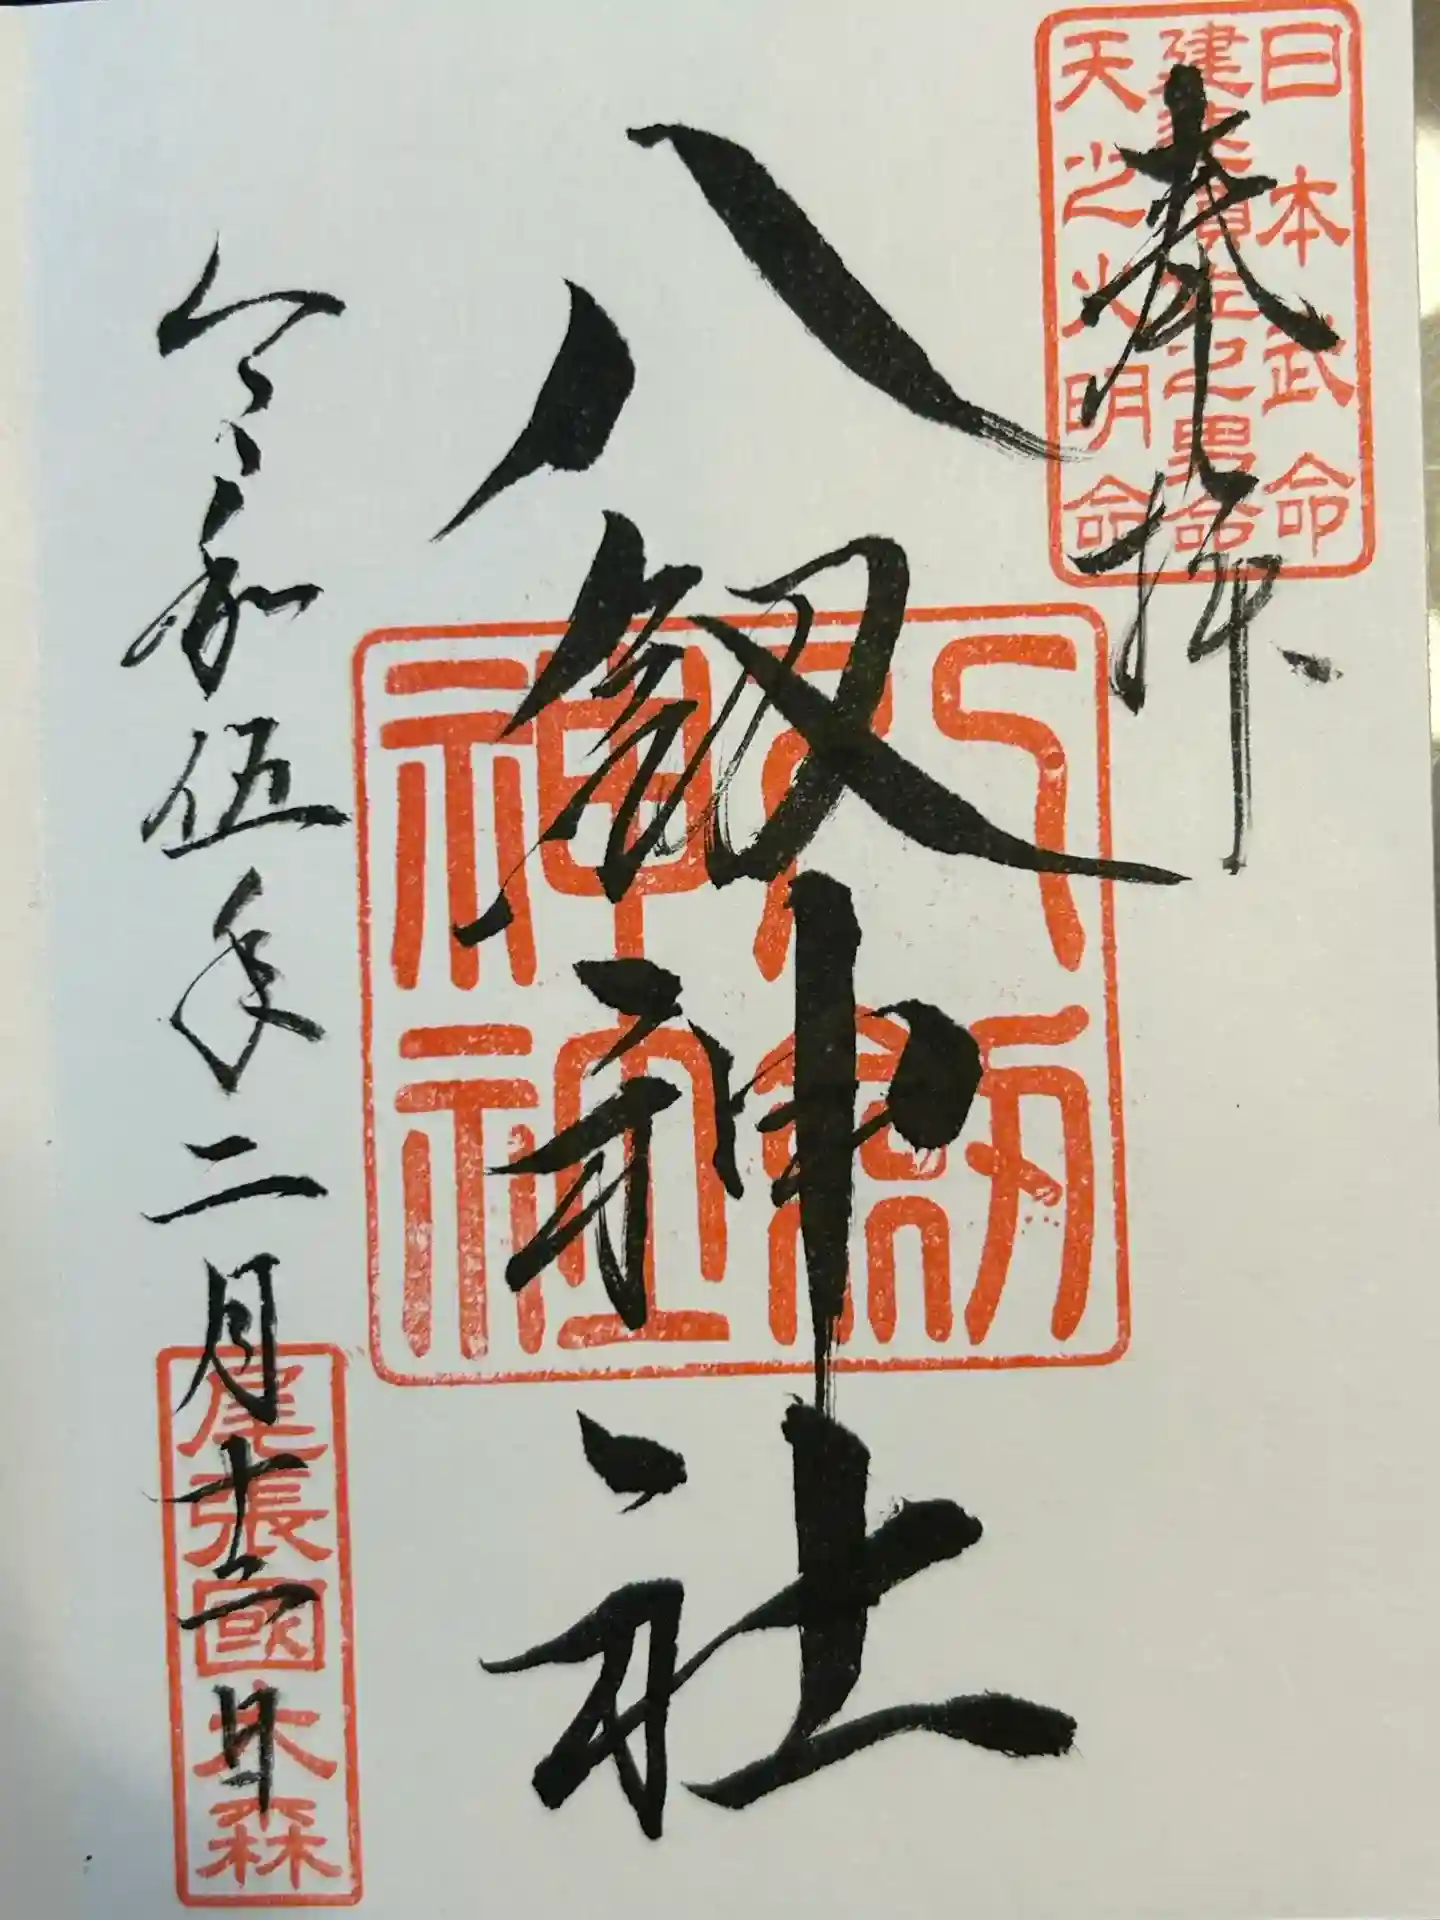 日本武命
建速須佐之男命
天之火明命
奉拝
八釼神社
八劔
神社
令和伍年二月十二日
尾張國大森